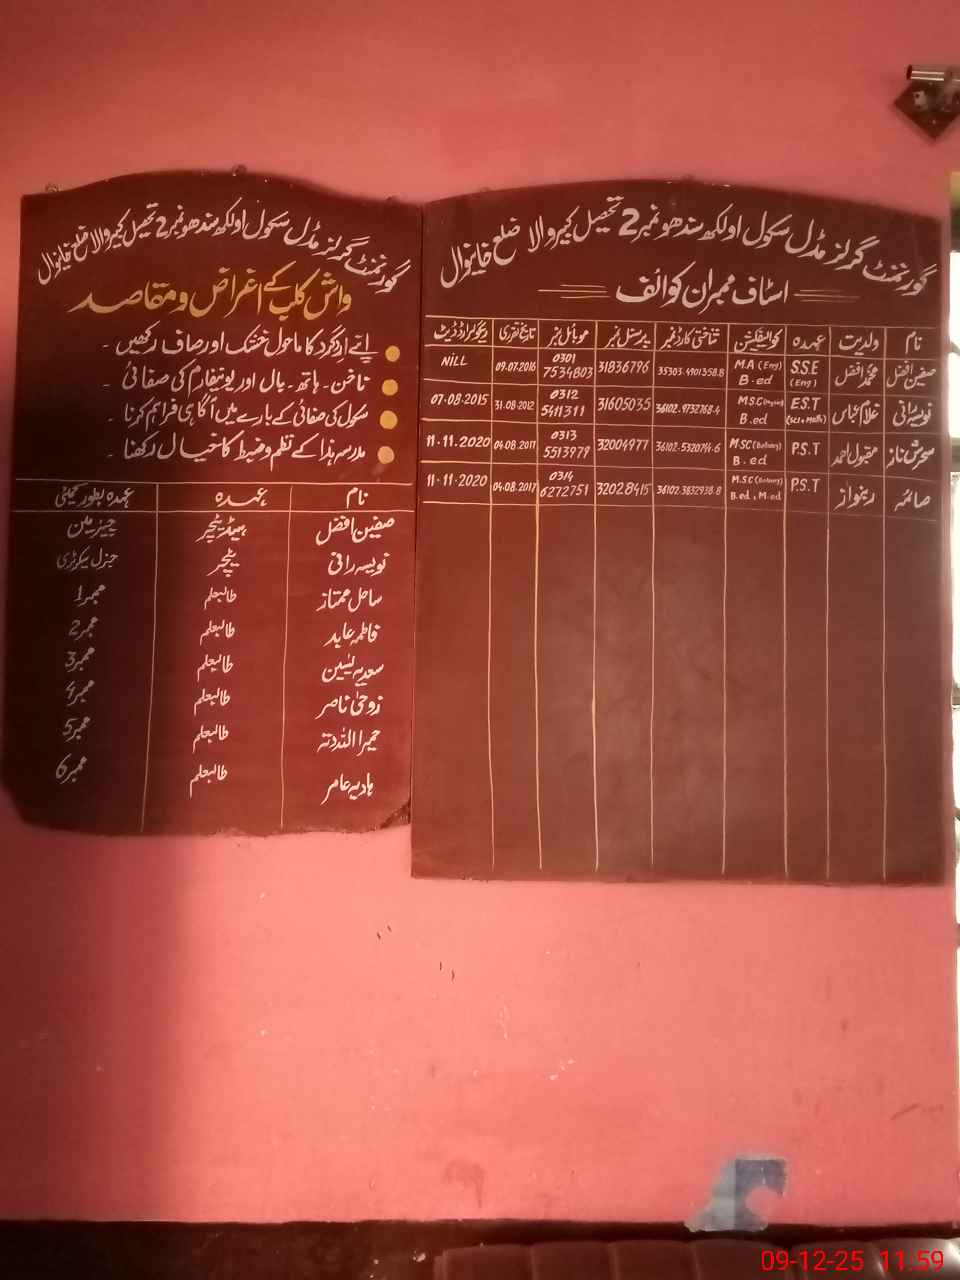 گورنمنٹ گرلز مڈل سکول اولکھ سندھو نمبر 2 تحصیل کبیروالا ضلع خانیوال
اسٹاف ممبران کوائف
نام ولدیت عہدہ کوالیفکیشن شناختی کارڈ نمبر پرسنل نمبر موبائل نمبر تاریخ تقرری ریگولرائزڈ ڈیٹ
صفین افضل محمد افضل S.S.E (Eng) M.A (Eng) B.ed 35303-4901358.8 31836796 0301 7534803 09.07.2016 NiLL
نویسہ رانی غلام عباس E.S.T (Sci, Math) M.SC B.ed 36102.9732768.4 31605035 0312 5411311 31.08.2012 07.08.2015
سحرش ناز مقبول احمد P.S.T M.SC (Botany) B.ed 36102-5320744-6 32004977 0313 5513979 04.08.2017 11.11.2020
صائمہ ربنواز P.S.T M.S.C (Botany) B.ed, M.ed 36102.3832938.8 32028415 0314 6272751 04.08.2017 11.11.2020
گورنمنٹ گرلز مڈل سکول اولکھ سندھو نمبر 2 تحصیل کبیروالا ضلع خانیوال
واش کلب کے اغراض و مقاصد
اپنے اردگرد کا ماحول خشک اور صاف رکھیں ۔
ناخن ۔ ہاتھ ۔ بال اور یونیفارم کی صفائی ۔
سکول کی صفائی کے بارے میں آگاہی فراہم کرنا ۔
مدرسہ ہذا کے نظم و ضبط کا خیال رکھنا ۔
نام عہدہ عہدہ بطور کمیٹی
صفین افضل ہیڈ ٹیچر چیئرمین
نویسہ رانی ٹیچر جنرل سیکرٹری
ساحل ممتاز طالبعلم ممبر 1
فاطمہ عابد طالبعلم ممبر 2
سعدیہ یٰسین طالبعلم ممبر 3
زوحیٰ ناصر طالبعلم ممبر 4
حمیرا اللہ دتہ طالبعلم ممبر 5
ہادیہ عامر طالبعلم ممبر 6
09-12-25 11:59